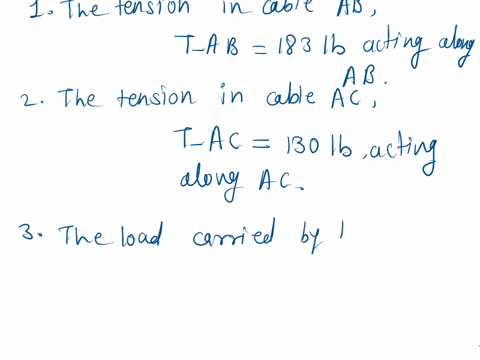 1. The tension in cable AB,
T_AB = 183 lb acting along
AB.
2. The tension in cable AC,
T_AC = 130 lb, acting
along AC.
3. The load carried by